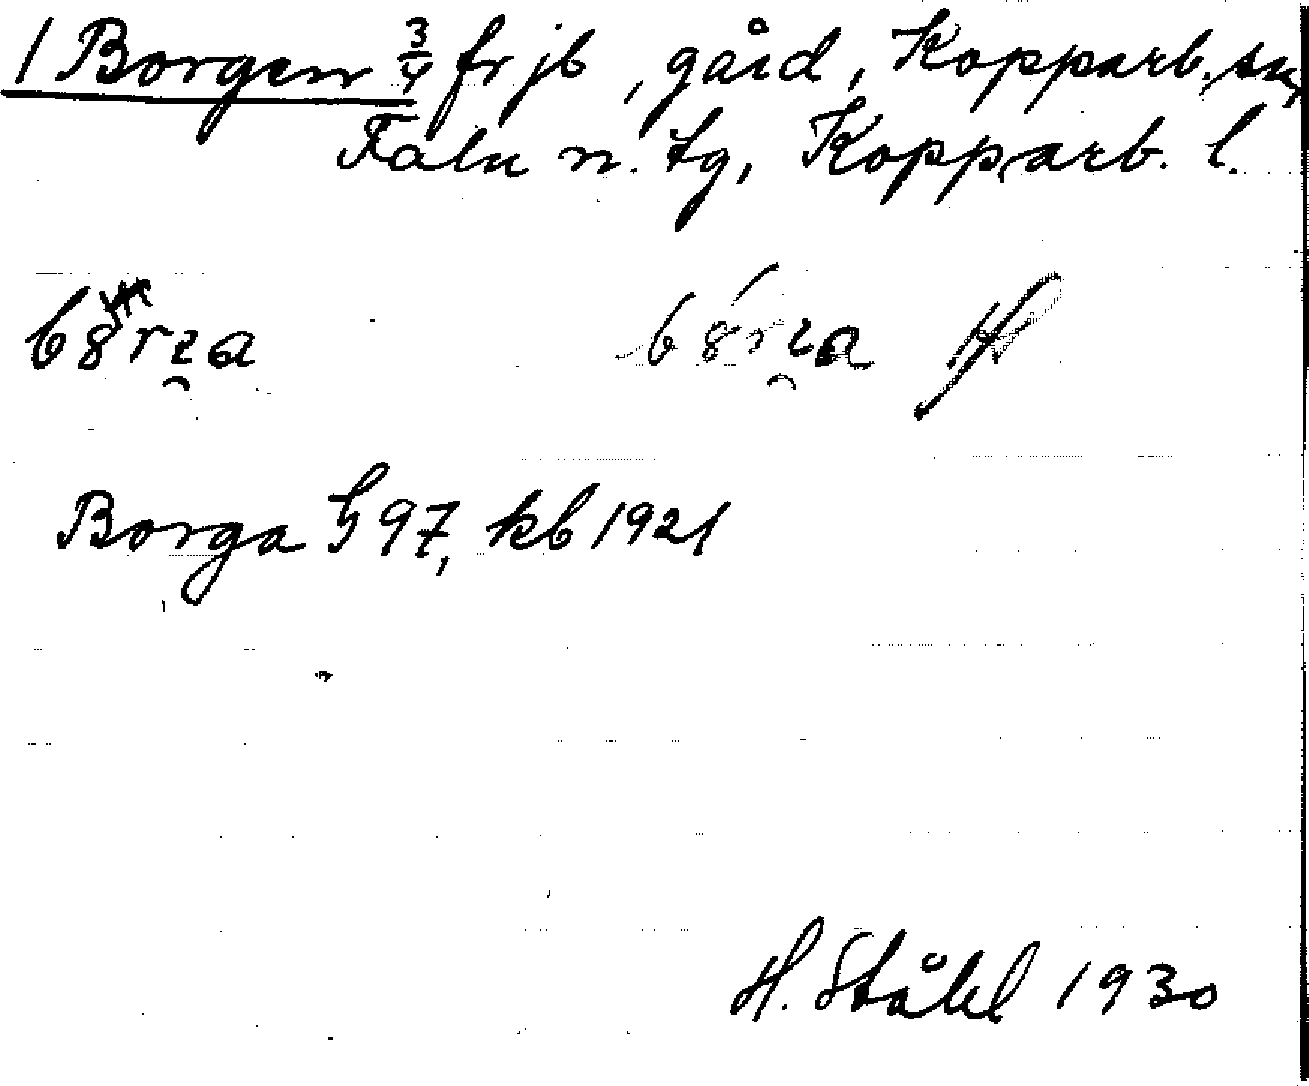 1 Borgen 3/4 frjb, gård, Kopparb. sn,
Falu n. tg, Kopparb. l.
b8rza b8́rza
Borga G 97, kb 1921
H. Ståhl 1930